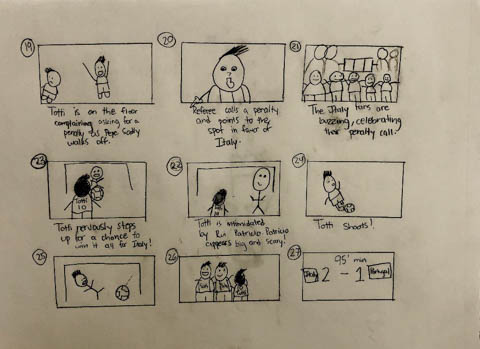 19
20
21
Totti is on the floor
complaining asking for a
penalty as Pepe Sadly
walks off.
Referee calls a penalty
and points to the
spot in favor of
Italy.
The Italy fans are
buzzing, celebrating
their penalty call.
23
22
24
Totti
10
Totti nervously steps
up for a chance to
win it all for Italy!
Totti is intimidated
by Rui Patricio. Patricio
appears big and scary!
Totti Shoots!
25
26
27
95' min
Italy 2 - 1 Portugal